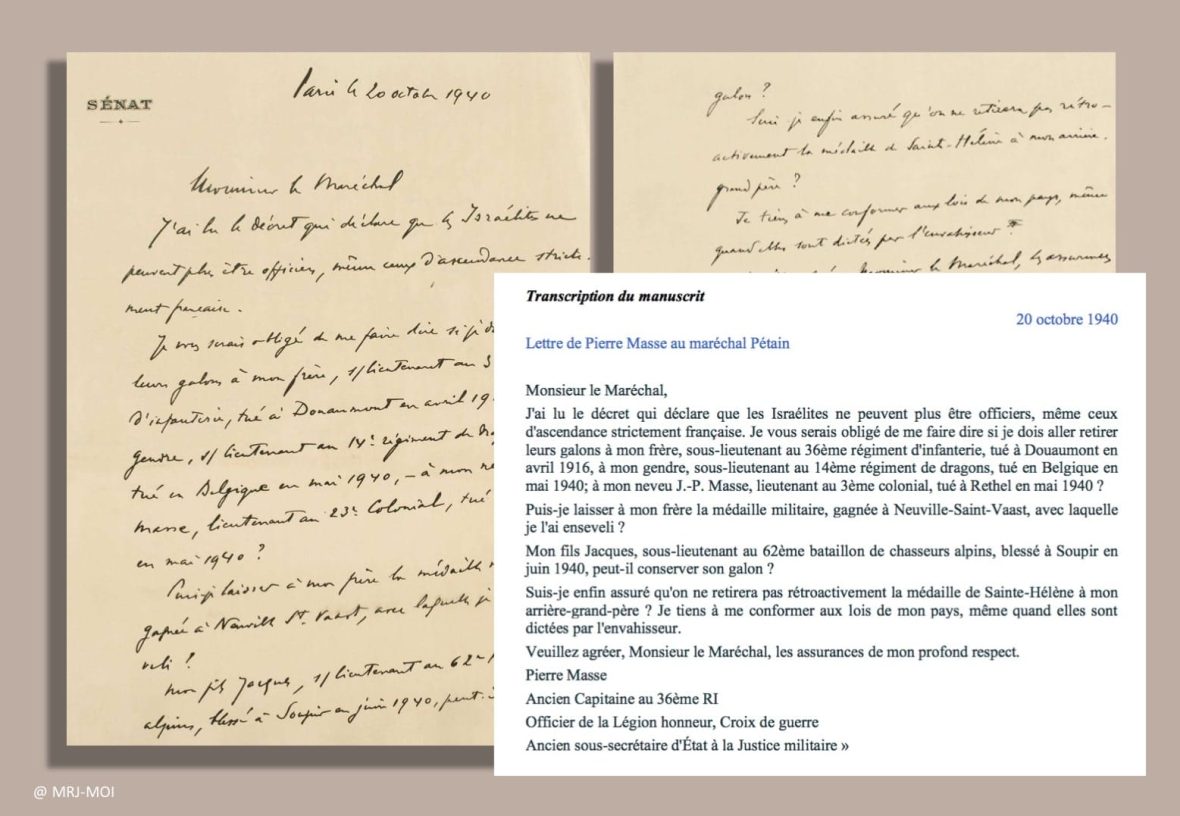 SÉNAT
Paris le 20 octobre 1940
Monsieur le Maréchal
J'ai lu le décret qui déclare que les Israélites ne
peuvent plus être officiers, même ceux d'ascendance stricte-
ment française.
Je vous serais obligé de me faire dire si je d
leurs galons à mon frère, s/lieutenant au 3
d'infanterie, tué à Douaumont en avril 19
gendre, s/lieutenant au 14e régiment de
tué en Belgique en mai 1940, – à mon ne
Masse, lieutenant au 23e Colonial, tué
en mai 1940 ?
Puis-je laisser à mon frère la médaille
gagnée à Neuville St. Vaast, avec laquelle je
veli ?
Mon fils Jacques, s/lieutenant au 62e
alpins, blessé à Soupir en juin 1940, peut-
galon ?
Suis-je enfin assuré qu'on ne retirera pas rétro-
activement la médaille de Sainte-Hélène à mon arrière-
grand père ?
Je tiens à me conformer aux lois de mon pays, même
quand elles sont dictées par l'envahisseur
Monsieur le Maréchal, les assurances
Transcription du manuscrit
20 octobre 1940
Lettre de Pierre Masse au maréchal Pétain
Monsieur le Maréchal,
J'ai lu le décret qui déclare que les Israélites ne peuvent plus être officiers, même ceux
d'ascendance strictement française. Je vous serais obligé de me faire dire si je dois aller retirer
leurs galons à mon frère, sous-lieutenant au 36ème régiment d'infanterie, tué à Douaumont en
avril 1916, à mon gendre, sous-lieutenant au 14ème régiment de dragons, tué en Belgique en
mai 1940; à mon neveu J.-P. Masse, lieutenant au 3ème colonial, tué à Rethel en mai 1940 ?
Puis-je laisser à mon frère la médaille militaire, gagnée à Neuville-Saint-Vaast, avec laquelle
je l'ai enseveli ?
Mon fils Jacques, sous-lieutenant au 62ème bataillon de chasseurs alpins, blessé à Soupir en
juin 1940, peut-il conserver son galon ?
Suis-je enfin assuré qu'on ne retirera pas rétroactivement la médaille de Sainte-Hélène à mon
arrière-grand-père ? Je tiens à me conformer aux lois de mon pays, même quand elles sont
dictées par l'envahisseur.
Veuillez agréer, Monsieur le Maréchal, les assurances de mon profond respect.
Pierre Masse
Ancien Capitaine au 36ème RI
Officier de la Légion honneur, Croix de guerre
Ancien sous-secrétaire d'État à la Justice militaire »
@ MRJ-MOI